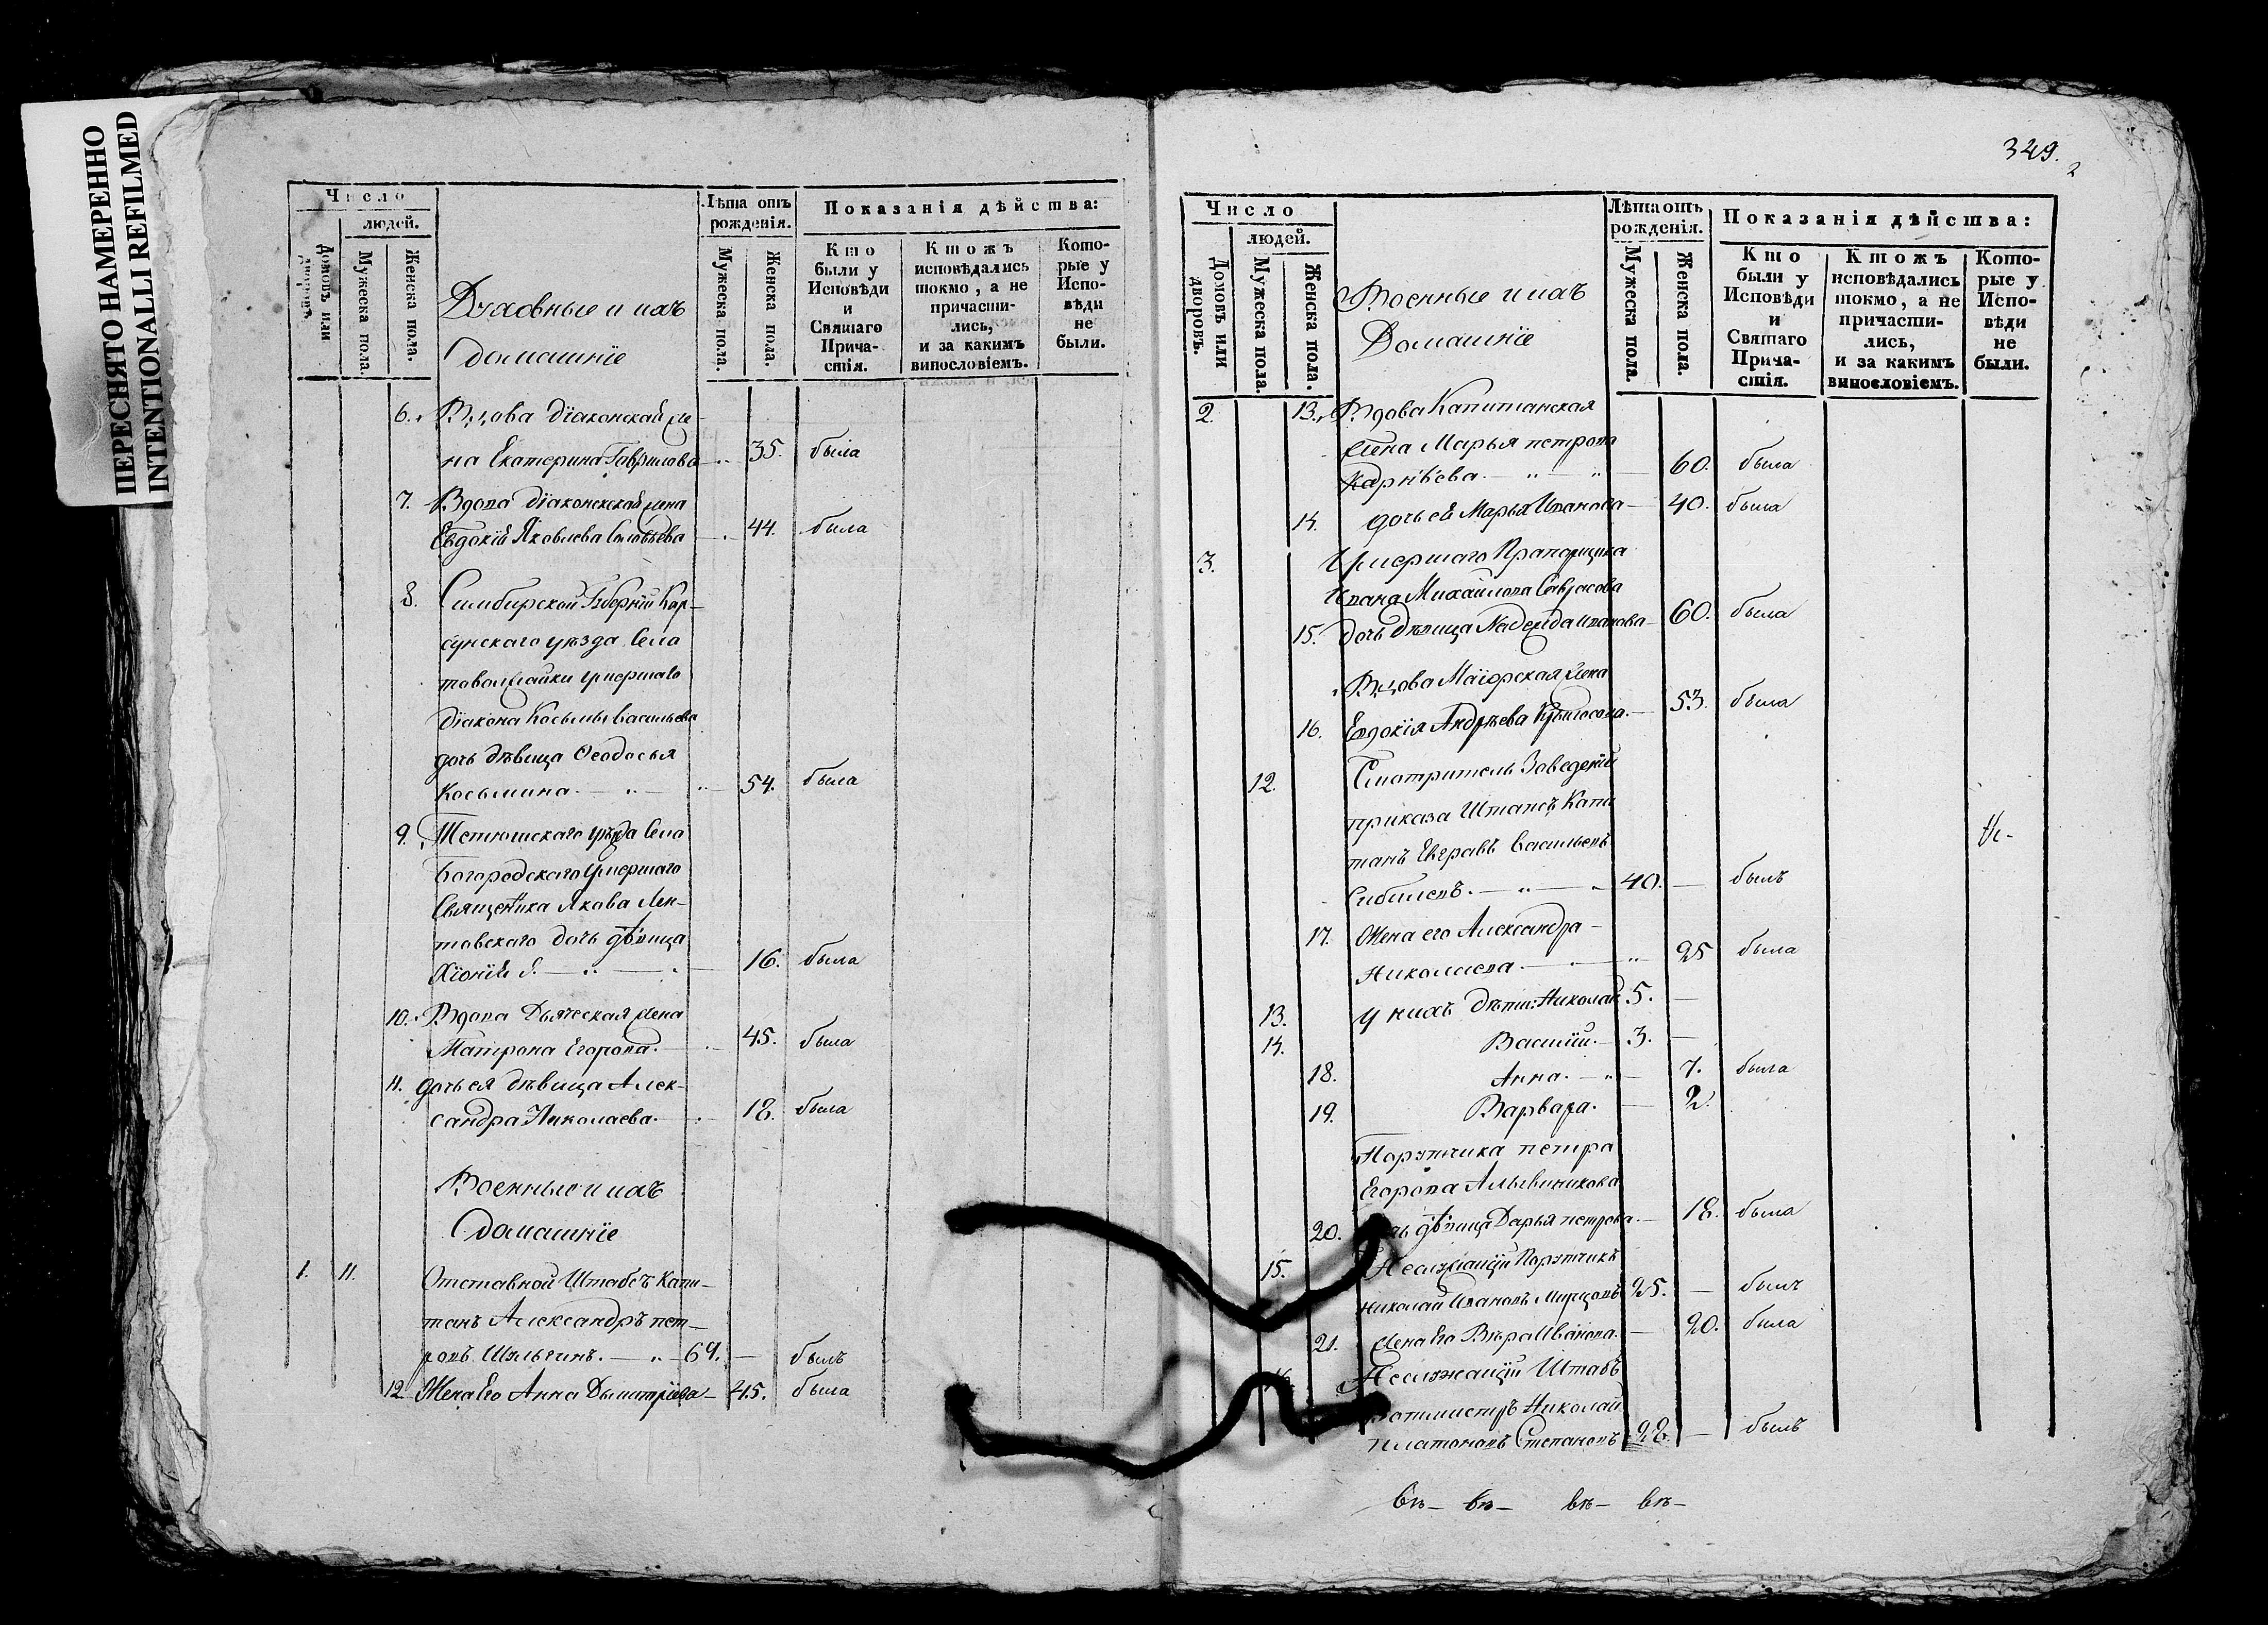 ПЕРЕСНЯТО НАМЕРЕННО
INTENTIONALLI REFILMED
Число
людей.
Домовъ или дворовъ.
Мужеска пола.
Женска пола.
Духовные и ихъ
домашніе
Лѣта отъ
рожденія.
Мужеска пола.
Женска пола.
Показанія дѣйства:
Кто
были у
Исповѣди
и
Святаго
Прича-
стія.
Ктожъ
исповѣдались
токмо, а не
причасти-
лись,
и за какимъ
винословіемъ.
Кото-
рые у
Испо-
вѣди
не
были.
6. Вдова діаконская же-
на Екатерина Гаврилова 35. была
7. Вдова діаконская жена
Евдокія Яковлева Соловьева 44. была
8. Симбирской Губерніи Кор-
сунскаго уѣзда Села
умершаго
діакона Косьмы Васильева
дочь дѣвица Ѳеодосья
Косьмина. 54. была
9. Тетюшскаго уѣзда Села
Богородскаго умершаго
Священника Якова Лен-
товскаго дочь дѣвица
Хіонія 16. была
10. Вдова Дьяческая жена
Матрона Егорова. 45. была
11. дочь ея дѣвица Алек-
сандра Николаева. 18. была
Военные и ихъ
домашніе
1. 11. Отставной Штабсъ Капи-
танъ Александръ Пет-
ровъ 69. былъ
12. Жена Его Анна Дымитріева 45. была
349.
2
Число
людей.
Домовъ или дворовъ.
Мужеска пола.
Женска пола.
Военные и ихъ
Домашніе
Лѣта отъ
рожденія.
Мужеска пола.
Женска пола.
Показанія дѣйства:
Кто
были у
Исповѣди
и
Святаго
Прича-
стія.
Ктожъ
исповѣдались
токмо, а не
причасти-
лись,
и за какимъ
винословіемъ.
Кото-
рые у
Испо-
вѣди
не
были.
2. 13. Вдова Капитанская
жена Марья Петрова
Карпѣева. 60. была
14. дочь ея Марья Иванова 40. была
3. Умершаго Прапорщика
Ивана Михайлова Саврасова
15. дочь дѣвица Надежда Иванова 60. была
Вдова Маіорская жена
16. Евдокія Андрѣева 53. была
12. Смотритель Заведеній
приказа Штапсъ Капи
танъ Евграѳъ Васильевъ
40. былъ
17. Жена его Александра
Николаева. 25 была
13. у нихъ дѣти: Николай 5.
14. Василій. 3.
18. Анна. 7. была
19. Варвара. 2.
Порутчика Петра
Егорова
20. дѣвица Дарья Петрова. 18. была
15. Неслужащій Порутчикъ
Николай Ивановъ 25. былъ
21. Жена Его Вѣра Иванова. 20. была
16. Неслужащій Штабъ
Ротмистръ Николай
Платоновъ Степановъ 28. былъ